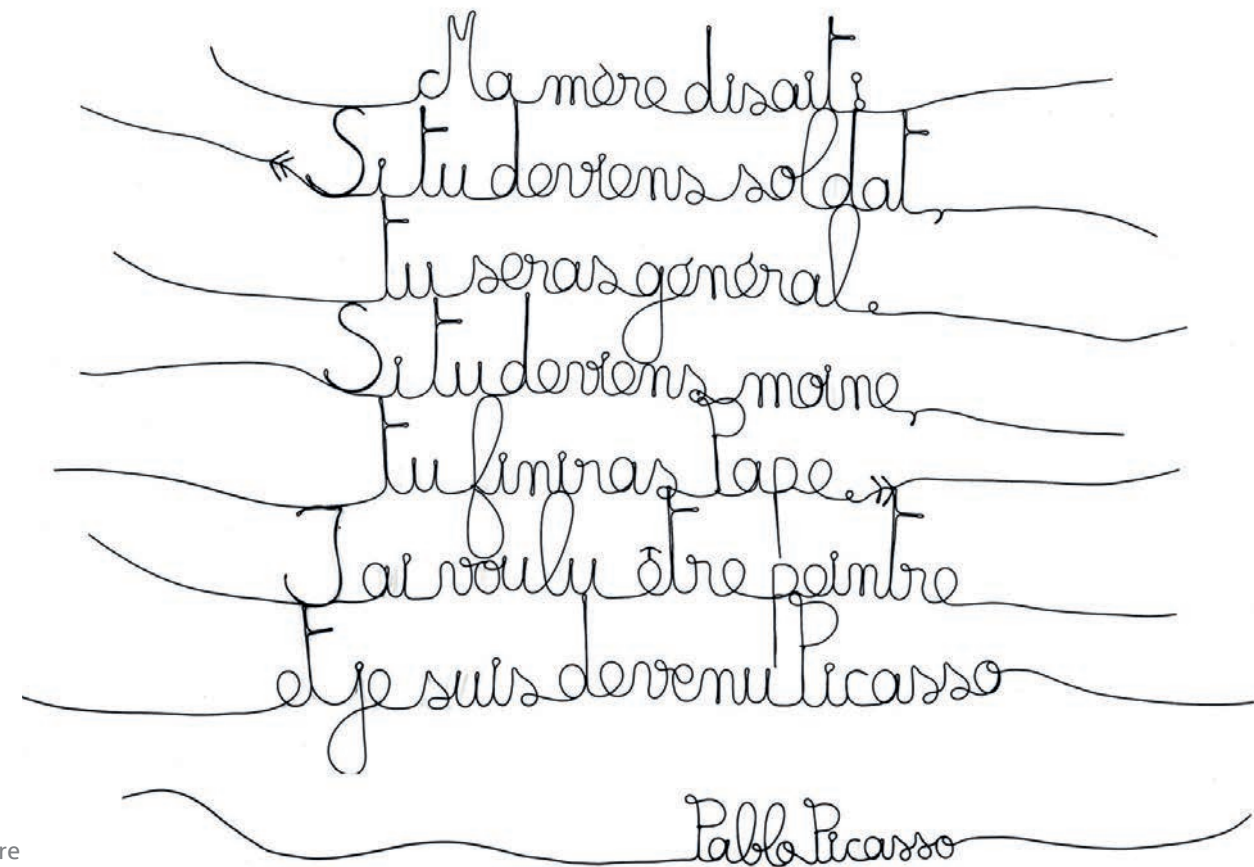 Ma mère disait :
« Si tu deviens soldat,
tu seras général.
Si tu deviens moine,
tu finiras Pape. »
J'ai voulu être peintre
et je suis devenu Picasso
Pablo Picasso
re